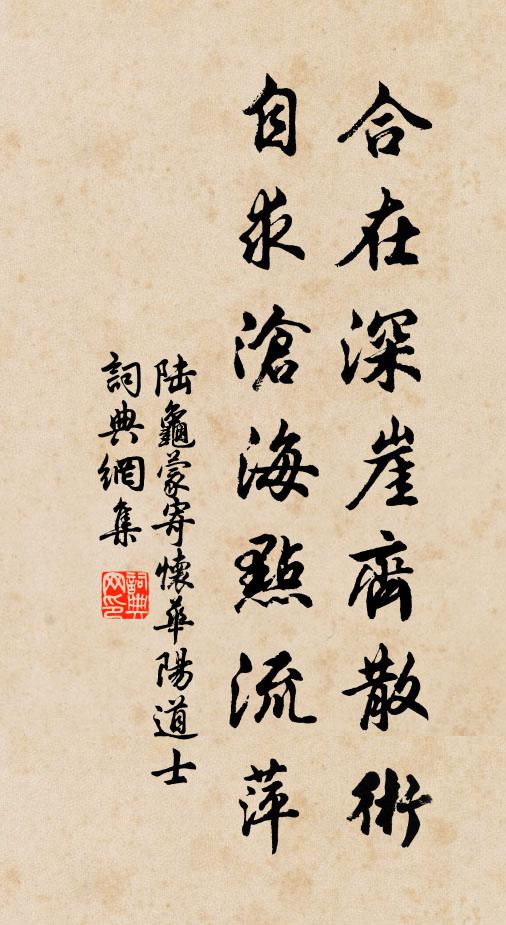 合在深崖齊散術
自求滄海點流萍
陆龜蒙寄懷華陽道士
詞典網集
詞典网印